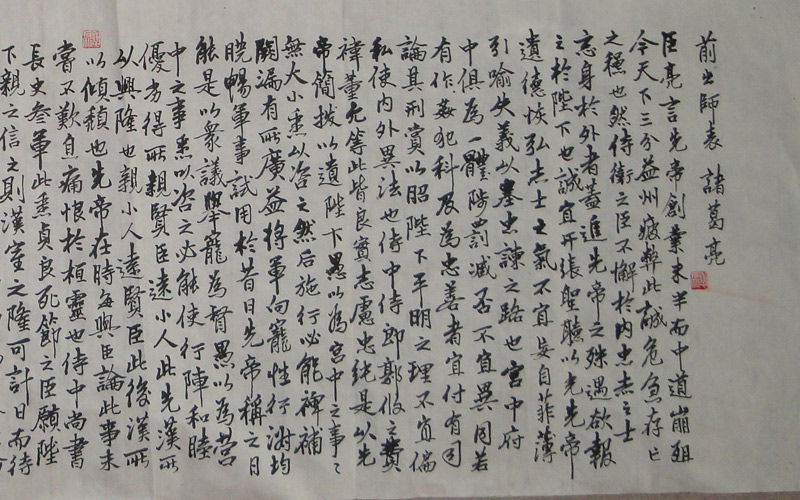 前出師表 諸葛亮
臣亮言先帝創業未半而中道崩殂
今天下三分益州疲弊此誠危急存亡
之穐也然侍衛之臣不懈於内忠志之士
忘身於外者蓋追先帝之殊遇欲報
之於陛下也誠宜开張聖聽以光先帝
遺德恢弘志士之氣不宜妄自菲薄
引喻失義以塞忠諫之路也宮中府
中俱為一體陟罰减否不宜異同若
有作姦犯科及為忠善者宜付有司
論其刑賞以昭陛下平明之理不宜偏
私使内外異法也侍中侍郎郭攸之費
禕董允等此皆良實志慮忠純是以先
帝簡拔以遺陛下愚以為宮中之事
無大小悉以咨之然后施行必能裨補
闕漏有所廣益將軍向寵性行淑均
曉暢軍事試用於昔日先帝稱之曰
能是以眾議舉寵為督愚以為营
中之事悉以咨之必能使行陣和睦
優劣得所親賢臣遠小人此先漢所
以興隆也親小人遠賢臣此後漢所
以傾頹也先帝在時每與臣論此事未
嘗不歎息痛恨於桓靈也侍中尚書
長史叅軍此悉貞良死節之臣願陛
下親之信之則漢室之隆可計日而待